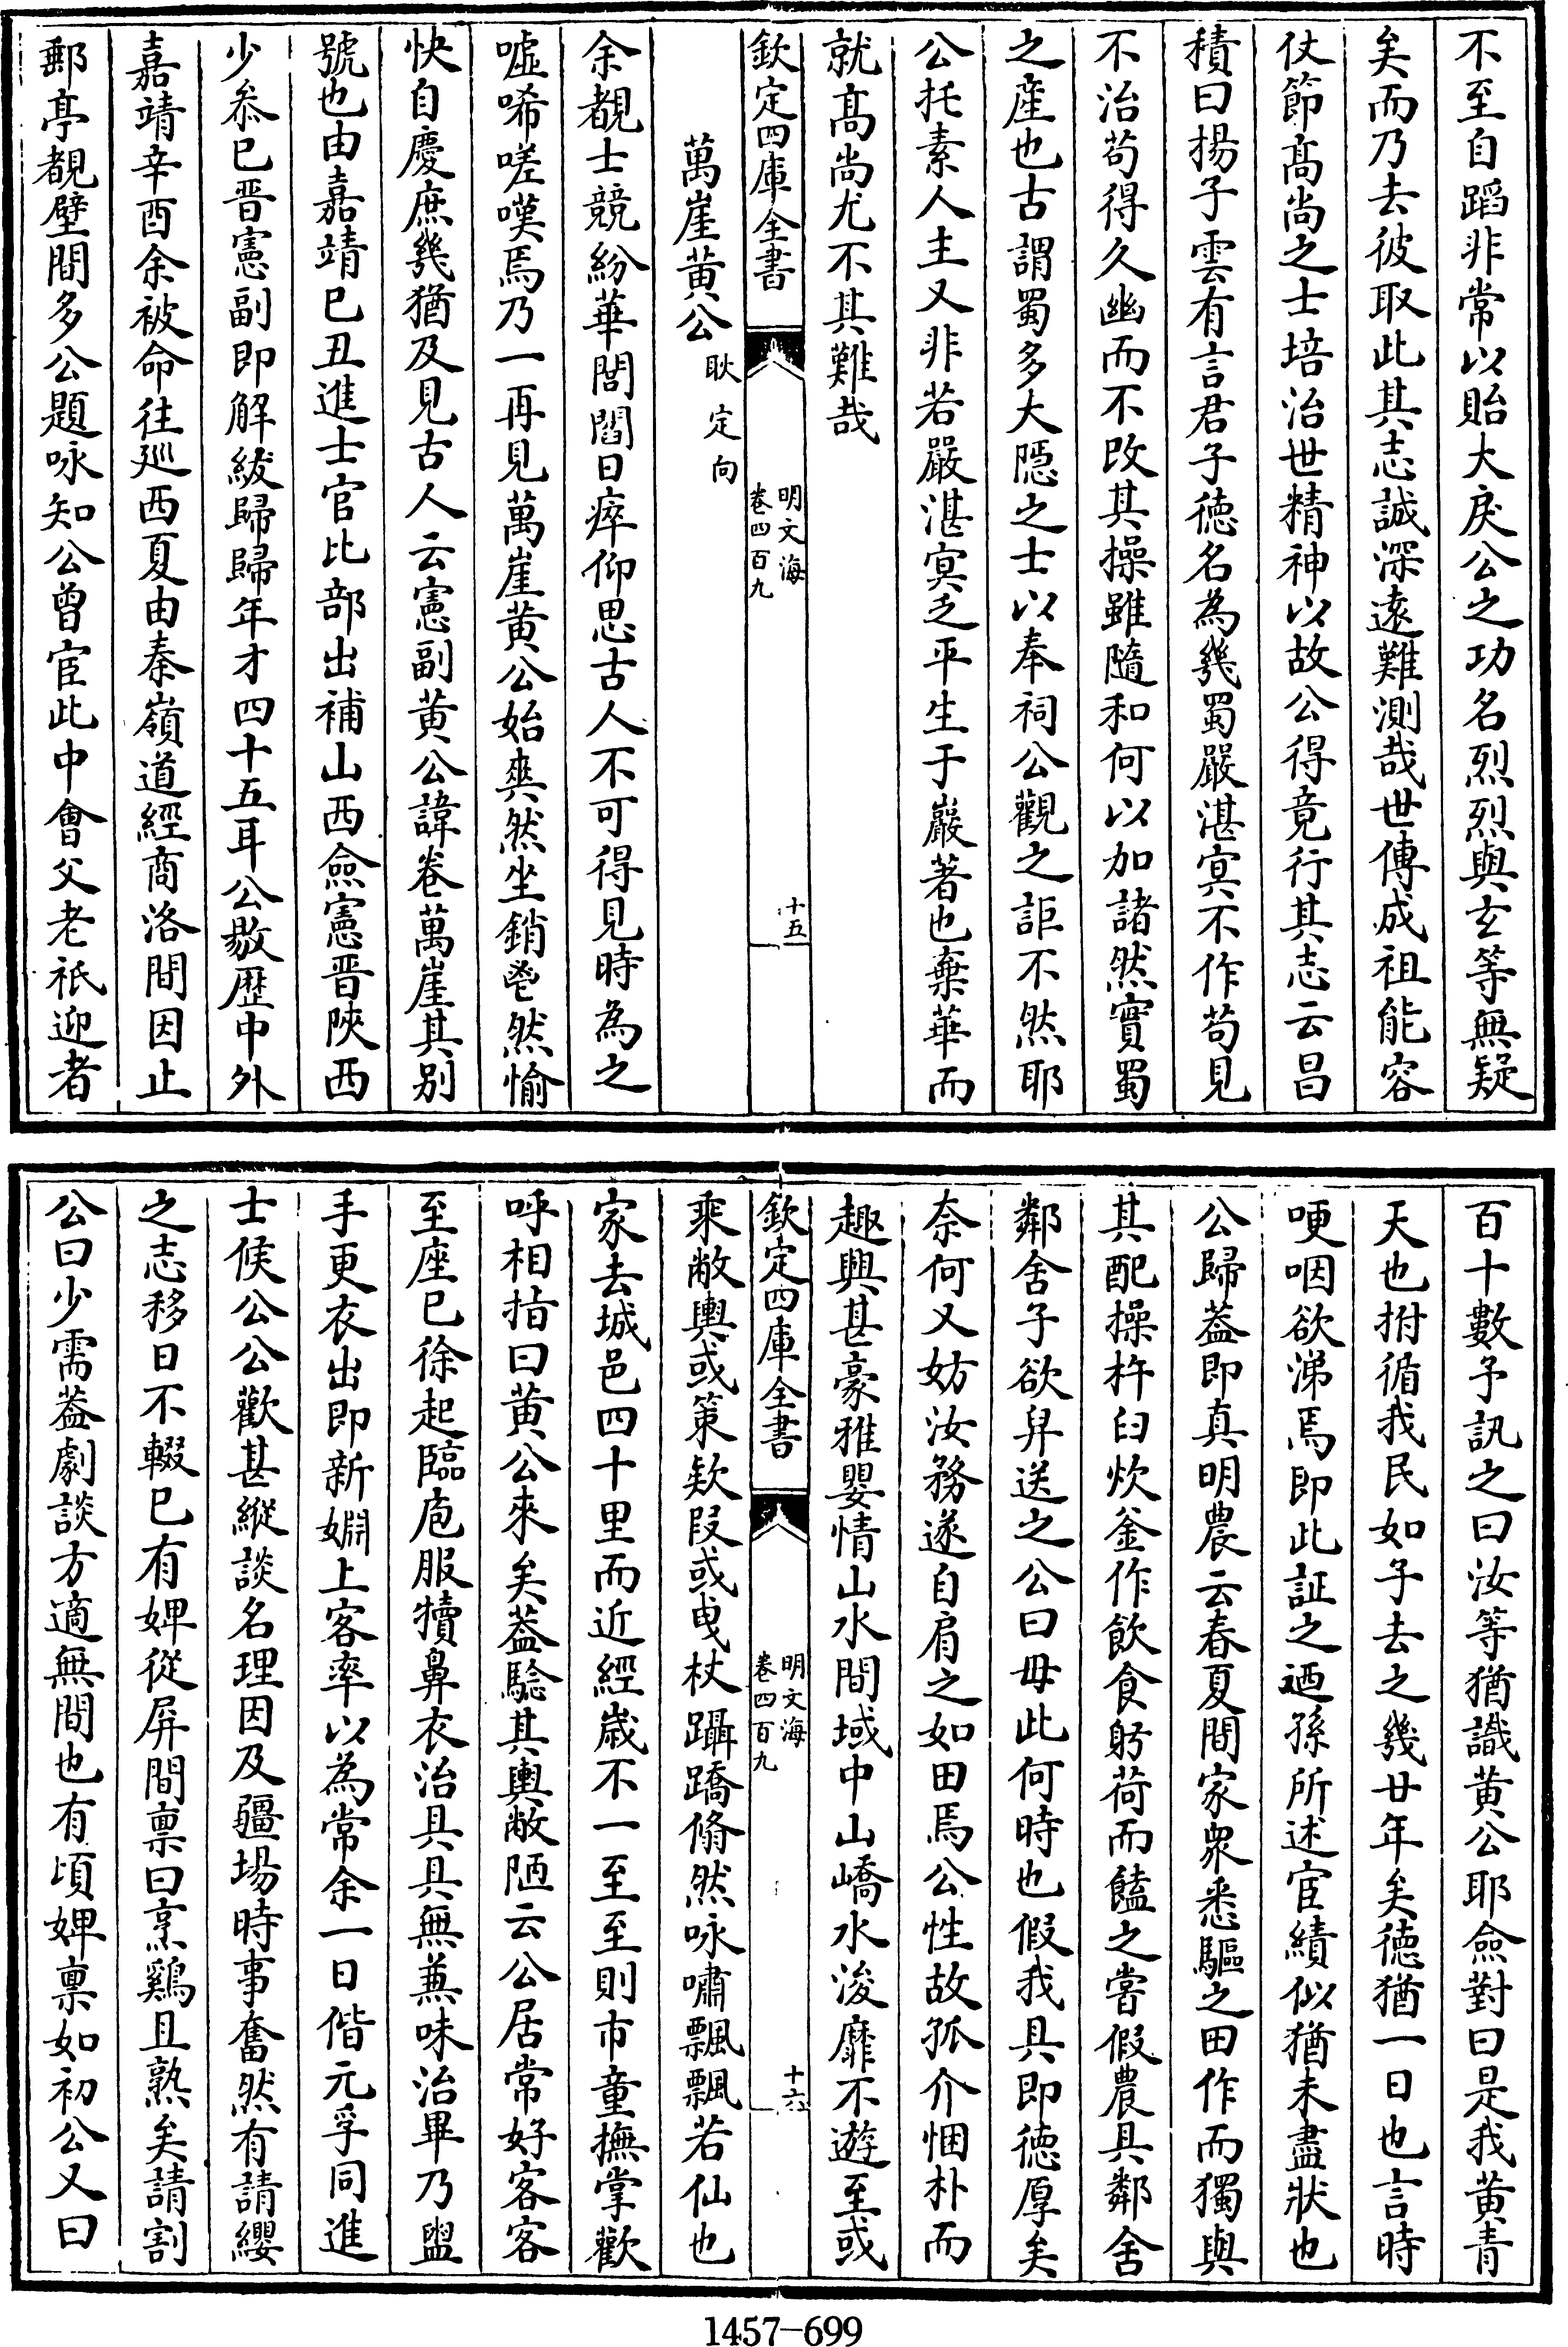 不至自蹈非常以貽大戾公之功名烈烈與玄等無疑
矣而乃去彼取此其志誠深遠難測哉世傳成祖能容
仗節髙尚之士培治世精神以故公得竟行其志云昌
積曰揚子雲有言君子徳名為幾蜀嚴湛㝠不作茍見
不治茍得久幽而不改其操雖隨和何以加諸然實蜀
之産也古謂蜀多大隠之士以奉祠公觀之詎不然耶
公托素人主又非若嚴湛㝠乏平生于巖著也棄華而
就髙尚尤不其難哉
欽定四庫全書
明文海
卷四百九
十五
萬崖黄公
耿定向
余覩士競紛華閭閻日瘁仰思古人不可得見時為之
嘘唏嗟嘆焉乃一再見萬崖黄公始爽然坐銷鬯然愉
快自慶庶幾猶及見古人云憲副黄公諱卷萬崖其别
號也由嘉靖已丑進士官比部出補山西僉憲晋陜西
少叅已晋憲副即解紱歸歸年才四十五耳公敭歴中外
嘉靖辛酉余被命往廵西夏由秦嶺道經商洛間因止
郵亭覩壁間多公題咏知公曾宦此中會父老祇迎者
百十數予訊之曰汝等猶識黄公耶僉對曰是我黄青
天也拊循我民如子去之幾廿年矣徳猶一日也言時
哽咽欲涕焉即此証之迺孫所述宦績似猶未盡狀也
公歸葢即真明農云春夏間家衆悉驅之田作而獨與
其配操杵臼炊釜作飲食躬荷而饁之嘗假農具鄰舍
鄰舍子欲舁送之公曰毋此何時也假我具即徳厚矣
奈何又妨汝務遂自肩之如田焉公性故孤介悃朴而
趣興甚豪雅嬰情山水間域中山嶠水浚靡不遊至或
欽定四庫全書
明文海
卷四百九
十六
乘敝輿或策欵段或曵杖躡蹻翛然咏嘯飄飄若仙也
家去城邑四十里而近經嵗不一至至則市童撫掌歡
呼相指曰黄公來矣葢騐其輿敝陋云公居常好客客
至座已徐起臨庖服犢鼻衣治具具無兼味治畢乃盥
手更衣出即新婣上客率以為常余一日偕元孚同進
士候公公歡甚縱談名理因及疆場時事奮然有請纓
之志移日不輟已有婢從屏間禀曰烹鷄且熟矣請割
公曰少需葢劇談方適無間也有頃婢禀如初公又曰
1457-699